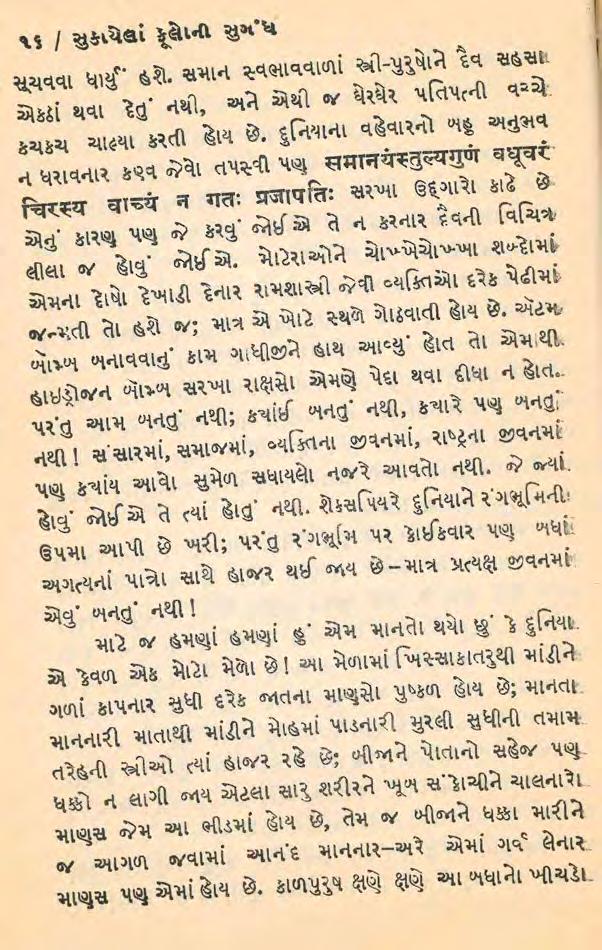 ૧૬ / સુકાયેલાં ફૂલોની સુગંધ
સૂચવવા ધાર્યું હશે. સમાન સ્વભાવવાળાં સ્ત્રી-પુરુષોને દૈવ સહસા
એકઠાં થવા દેતું નથી, અને એથી જ ઘેરઘેર પતિપત્ની વચ્ચે
કચકચ ચાલ્યા કરતી હોય છે. દુનિયાના વહેવારનો બહુ અનુભવ
ન ધરાવનાર કણ્વ જેવો તપસ્વી પણ समानयंस्तुल्यगुणं वधूवरं
चिरस्य वाच्यं न गतः प्रजापतिः સરખા ઉદ્ગારો કાઢે છે
એનું કારણ પણ જે કરવું જોઈએ તે ન કરનાર દૈવની વિચિત્ર
લીલા જ હોવું જોઈએ. મોટેરાઓને ચોખ્ખેચોખ્ખા શબ્દોમાં
એમના દોષો દેખાડી દેનાર રામશાસ્ત્રી જેવી વ્યક્તિઓ દરેક પેઢીમાં
જન્મતી તો હશે જ; માત્ર એ ખોટે સ્થળે ગોઠવાતી હોય છે. ઍટમ
બૉમ્બ બનાવવાનું કામ ગાંધીજીને હાથ આવ્યું હોત તો એમાંથી
હાઇડ્રોજન બૉમ્બ સરખા રાક્ષસો એમણે પેદા થવા દીધા ન હોત.
પરંતુ આમ બનતું નથી; કયાંઈ બનતું નથી, કયારે પણ બનતું
નથી! સંસારમાં, સમાજમાં, વ્યક્તિના જીવનમાં, રાષ્ટ્રના જીવનમાં
પણ કયાંય આવો સુમેળ સધાયલો નજરે આવતો નથી. જે જ્યાં
હોવું જોઈએ તે ત્યાં હોતું નથી. શેકસપિયરે દુનિયાને રંગભૂમિની
ઉપમા આપી છે ખરી; પરંતુ રંગભૂમિ પર કોઈકવાર પણ બધાં
અગત્યનાં પાત્રો સાથે હાજર થઈ જાય છે – માત્ર પ્રત્યક્ષ જીવનમાં
એવું બનતું નથી!
માટે જ હમણાં હમણાં હું એમ માનતો થયો છું કે દુનિયા
એ કેવળ એક મોટો મેળો છે! આ મેળામાં ખિસ્સાકાતરુથી માંડીને
ગળાં કાપનાર સુધી દરેક જાતના માણસો પુષ્કળ હોય છે; માનતા
માનનારી માતાથી માંડીને મોહમાં પાડનારી મુરલી સુધીની તમામ
તરેહની સ્ત્રીઓ ત્યાં હાજર રહે છે; બીજાને પોતાનો સહેજ પણ
ધક્કો ન લાગી જાય એટલા સારુ શરીરને ખૂબ સંકોચીને ચાલનારો
માણસ જેમ આ ભીડમાં હોય છે, તેમ જ બીજાને ધક્કા મારીને
જ આગળ જવામાં આનંદ માનનાર–અરે એમાં ગર્વ લેનાર
માણસ પણ એમાં હોય છે. કાળપુરુષ ક્ષણે ક્ષણે આ બધાનો ખીચડો